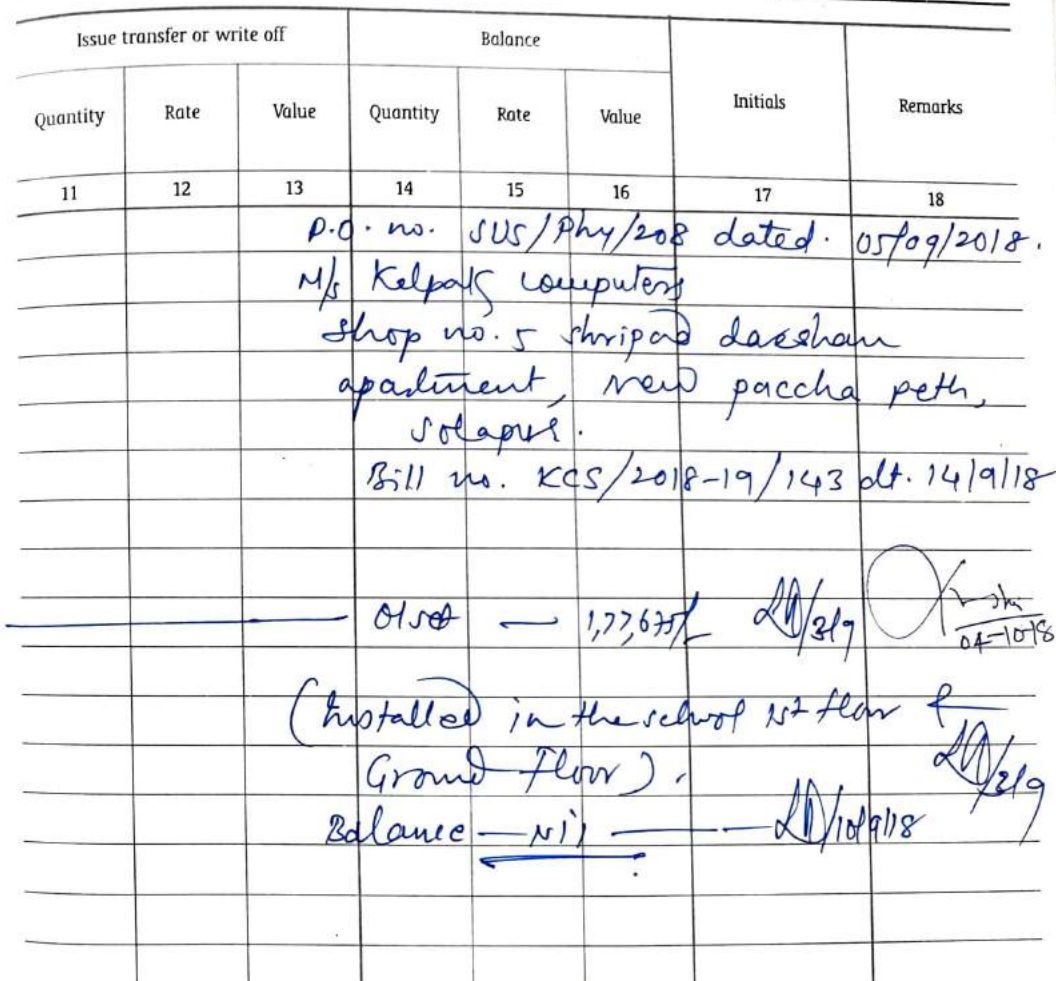 Issue transfer or write off Balance Initials Remarks
Quantity Rate Value Quantity Rate Value
11 12 13 14 15 16 17 18
P.O. no. SUS/Phy/208 dated. 05/09/2018.
M/s Kalpak computers
Shop no. 5 shripad darshan
apartment, new paccha peth,
Solapur.
Bill no. KCS/2018-19/143 dt. 14/9/18
01 set — 1,77,675/-
04-10-18
(Installed in the school 1st floor &
Ground Floor).
Balance — Nil — 10/9/18